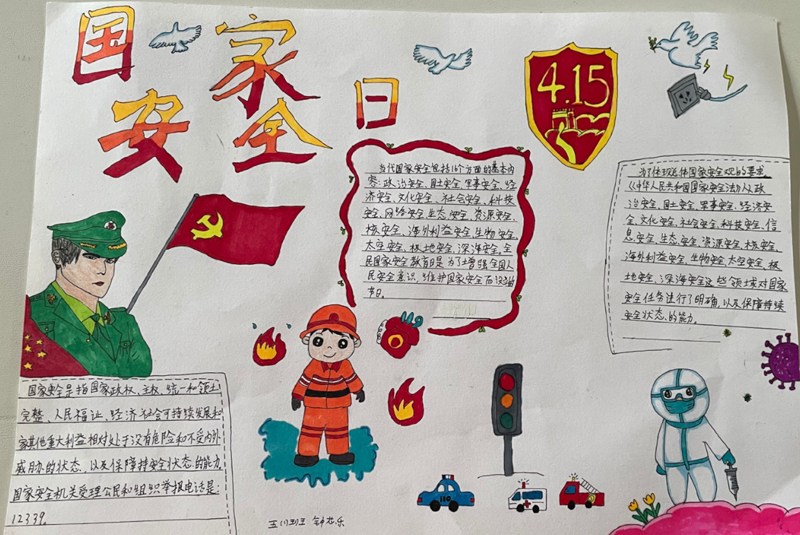 国家
安全日
4.15
当代国家安全包括16个方面的基本内
容:政治安全、国土安全、军事安全、经
济安全、文化安全、社会安全、科技
安全、网络安全、生态安全、资源安全、
核安全、海外利益安全、生物安全、
太空安全、极地安全、深海安全。全
民国家安全教育日是为了增强全国人
民安全意识,维护国家安全而设立的
节日。
为了体现总体国家安全观的要求,
《中华人民共和国国家安全法》从政
治安全、国土安全、军事安全、经济安
全、文化安全、社会安全、科技安全、信
息安全、生态安全、资源安全、核安全、
海外利益安全、生物安全、太空安全、极
地安全、深海安全这些领域对国家
安全任务进行了明确,以及保障持续
安全状态的能力。
国家安全是指国家政权、主权、统一和领土
完整、人民福祉、经济社会可持续发展和
家其他重大利益相对处于没有危险和不受内外
威胁的状态,以及保障持安全状态的能力,
国家安全机关受理公民和组织举报电话是:
12339。
110
五(1)班